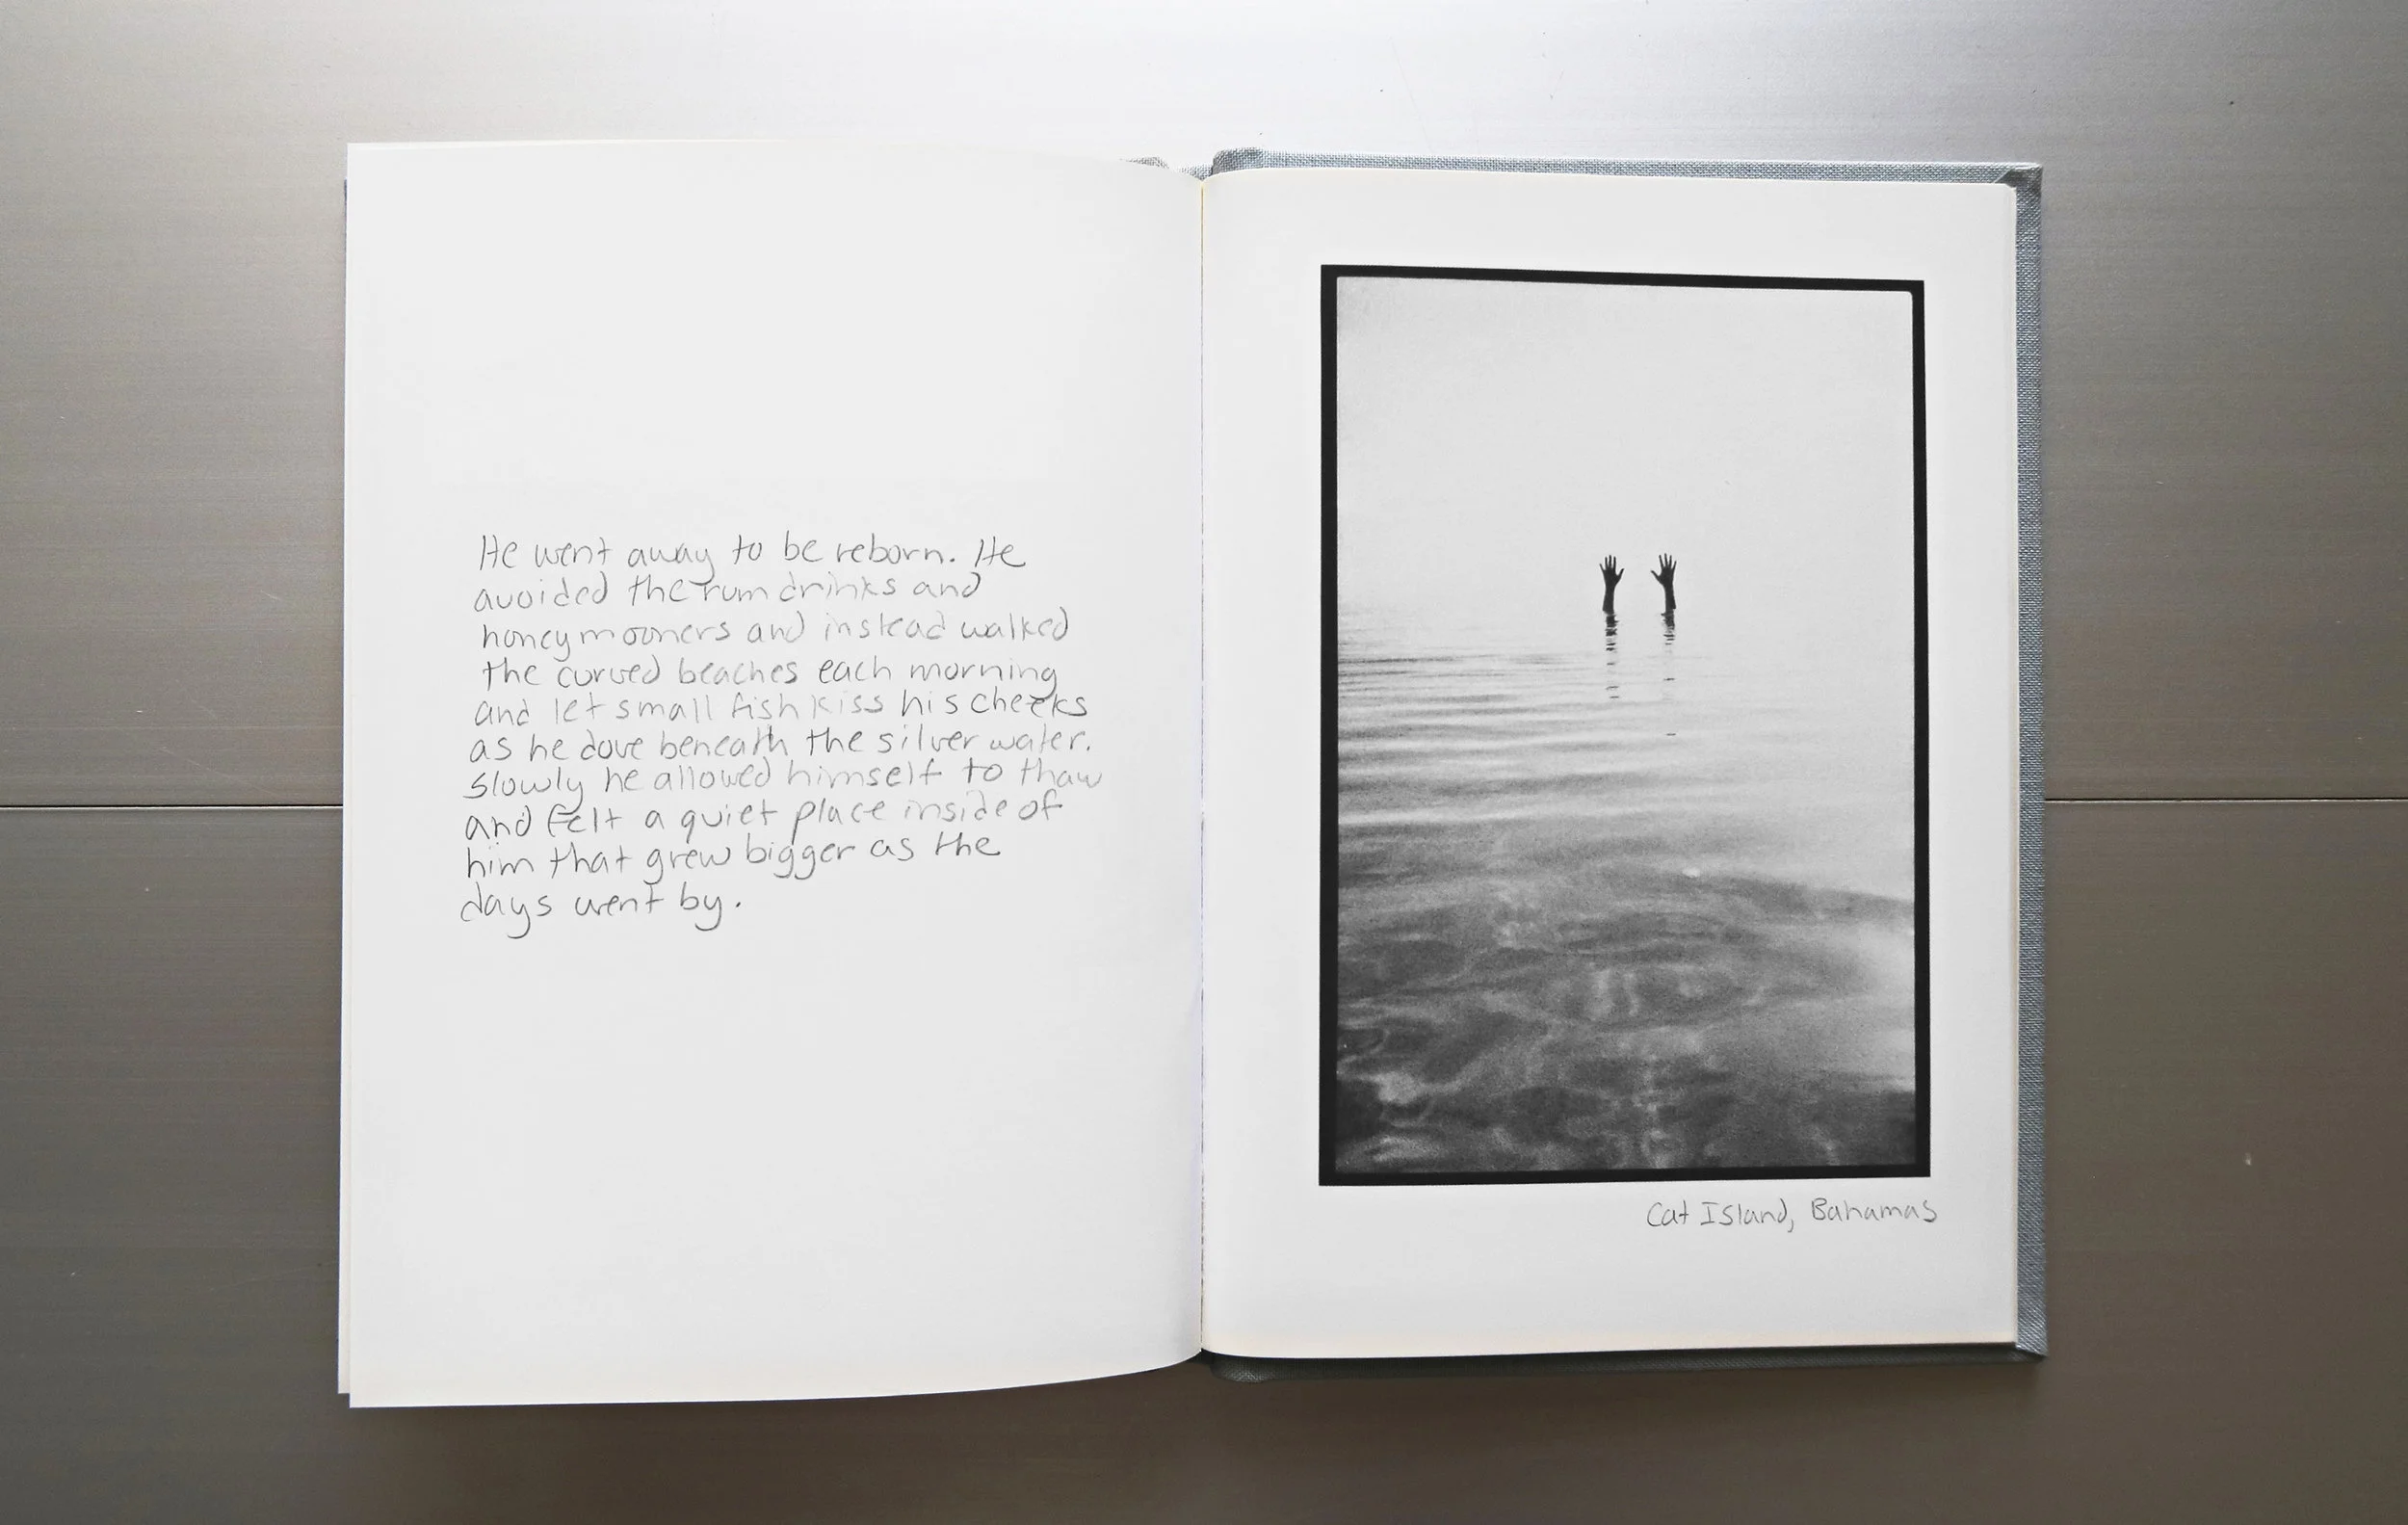 He went away to be reborn. He
avoided the rum drinks and
honeymooners and instead walked
the curved beaches each morning
and let small fish kiss his cheeks
as he dove beneath the silver water.
Slowly he allowed himself to thaw
and felt a quiet place inside of
him that grew bigger as the
days went by.
Cat Island, Bahamas